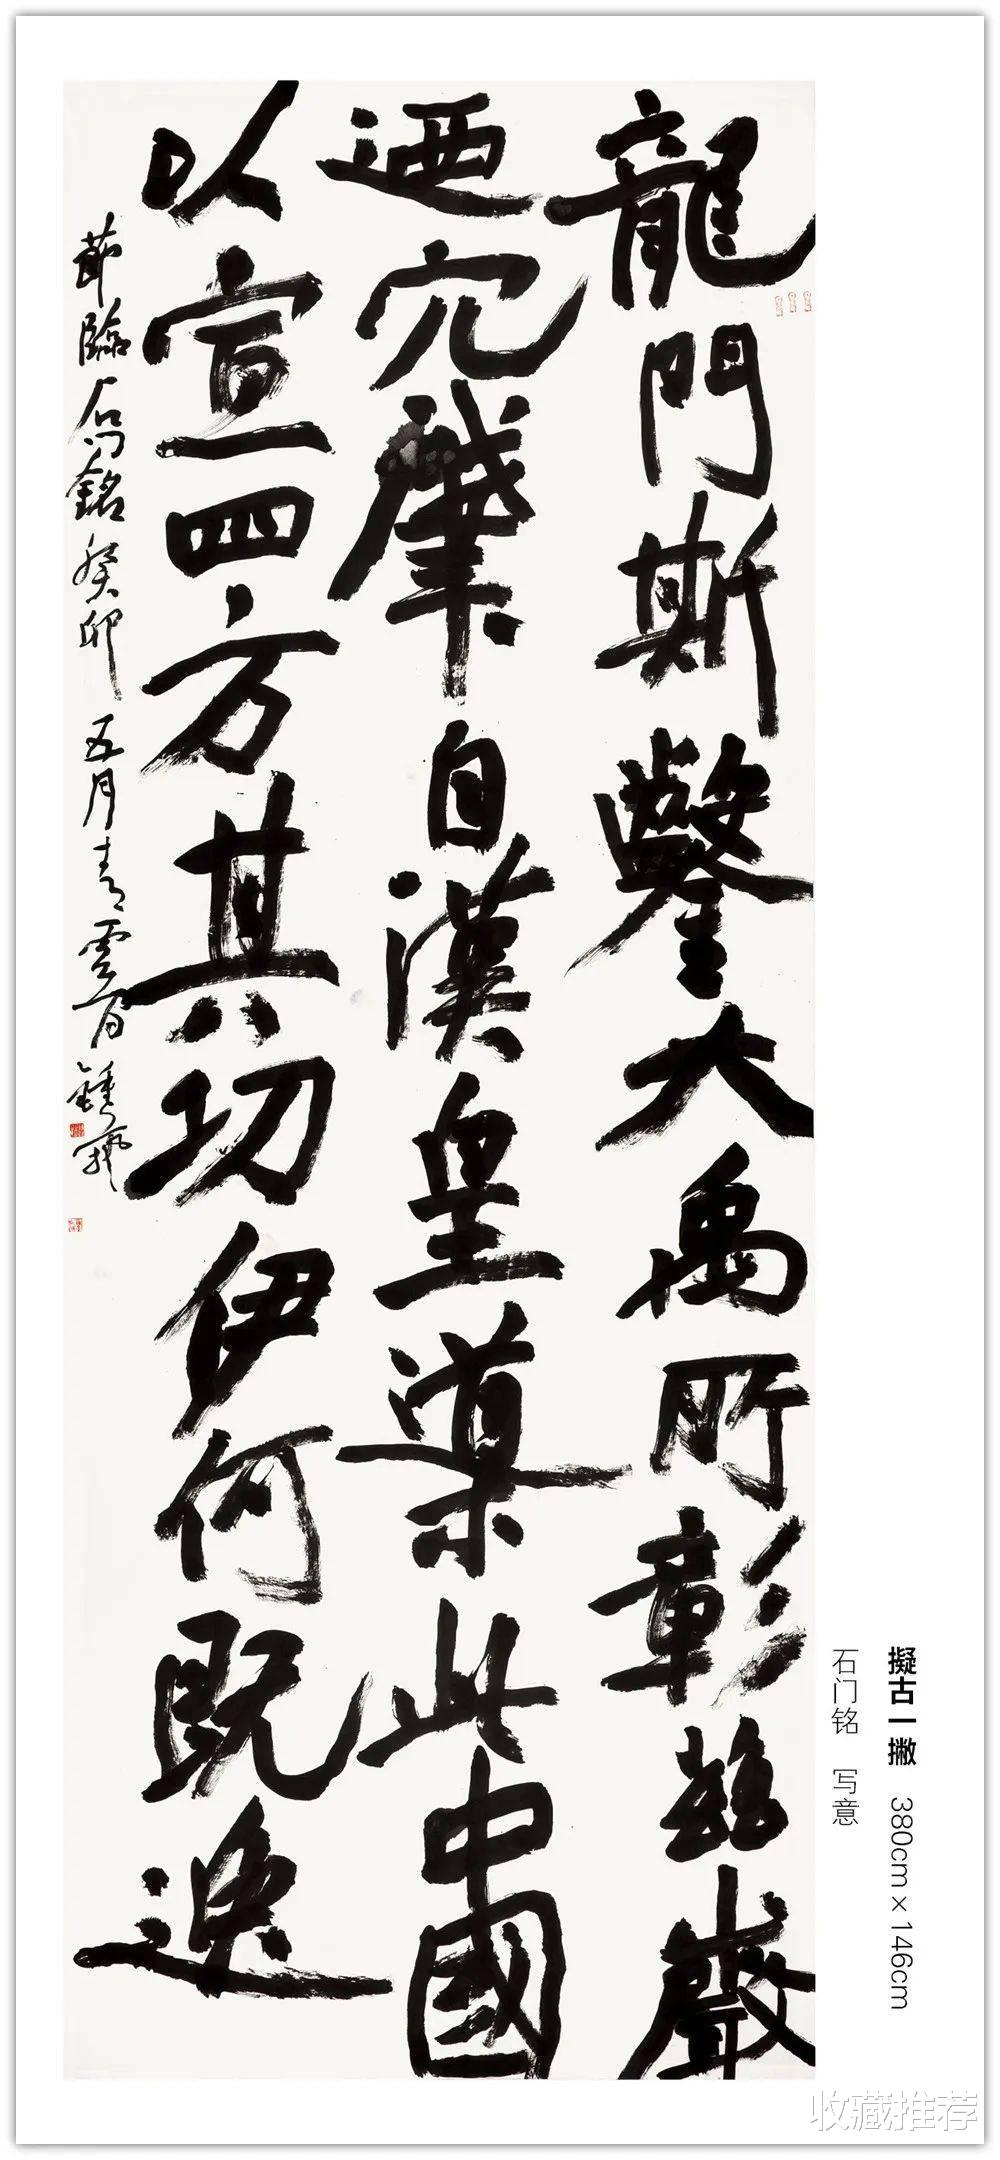 龍門斯鑿大禹所彰茲巖
迺穴肇自漢皇導此中國
以宣四方其功伊何既逸
節臨石门銘癸卯五月青雲
擬古一撇 380cm×146cm
石门铭 写意
收藏推荐